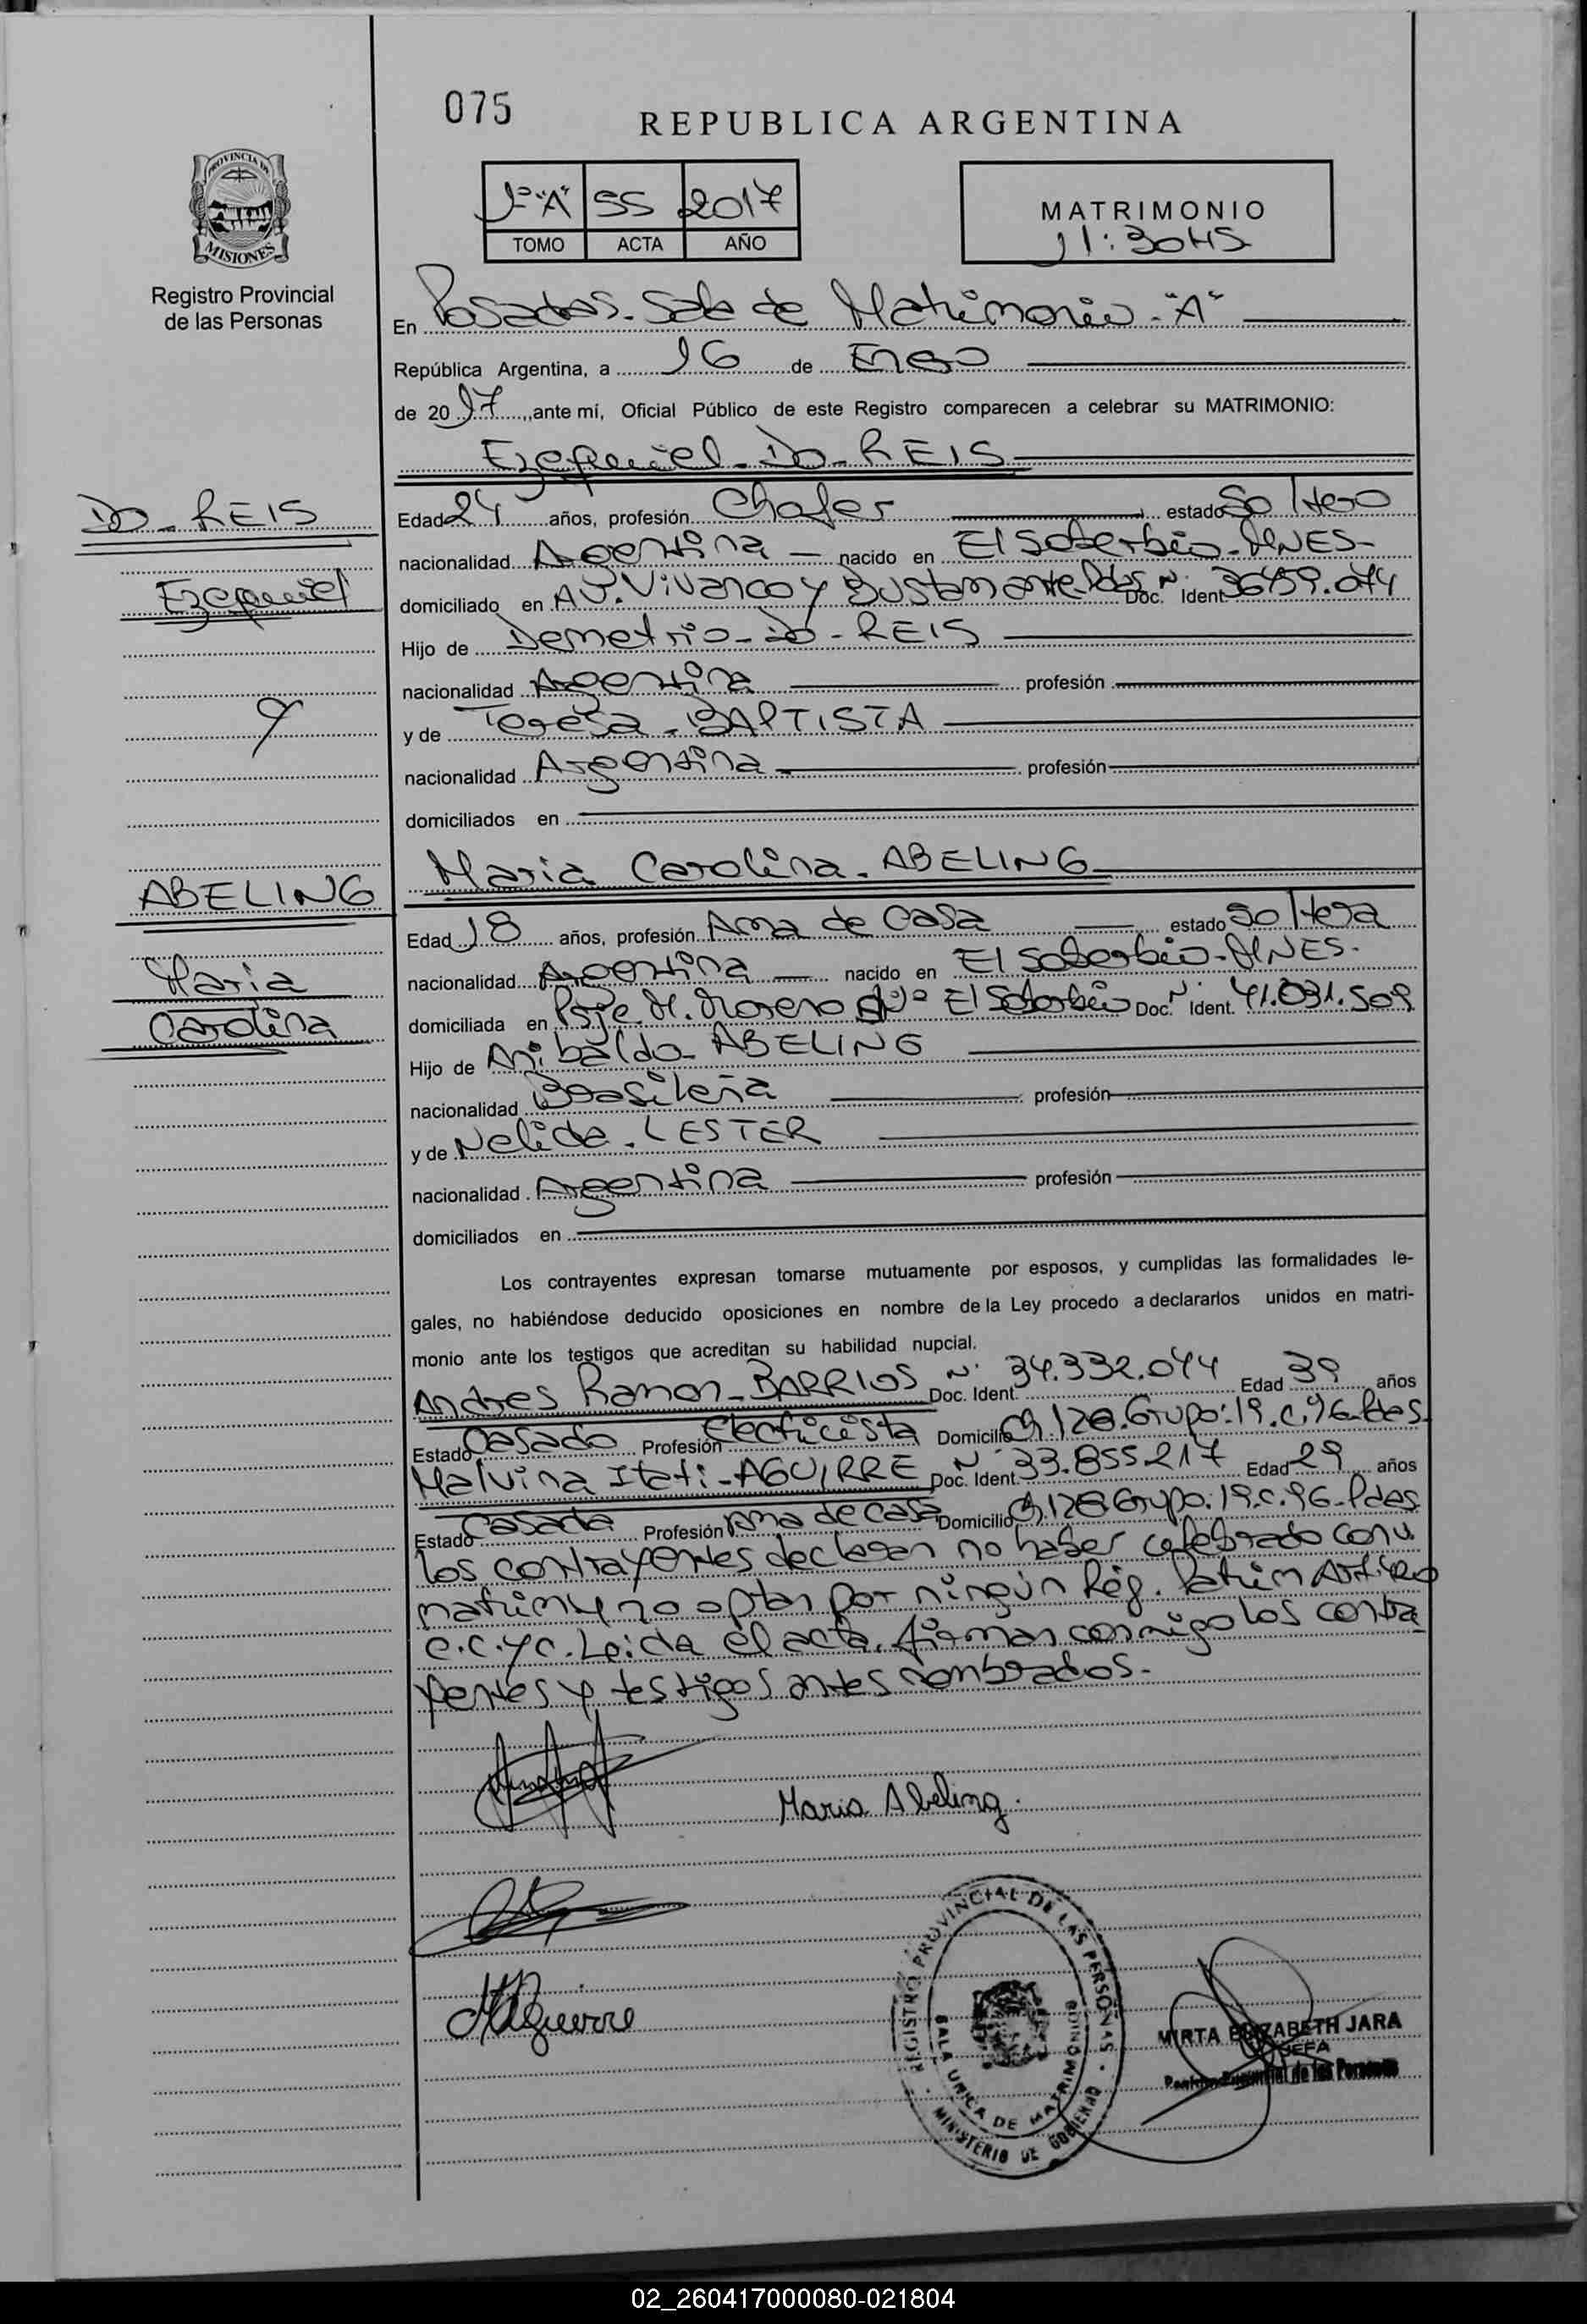 075
REPUBLICA ARGENTINA
PROVINCIA DE
MISIONES
Registro Provincial
de las Personas
1º "A" 55 2017
TOMO ACTA AÑO
MATRIMONIO
11:30HS
En Posadas - Sala de Matrimonio - "A"
República Argentina, a 16 de Enero
de 2017, ante mí, Oficial Público de este Registro comparecen a celebrar su MATRIMONIO:
Ezequiel - Do - REIS
DO - REIS
Ezequiel
Edad 24 años, profesión Chofer estado Soltero
nacionalidad Argentina nacido en El Soberbio - MNES -
domiciliado en AV. Vivanco y Bustamante Pdas Nº Doc. Ident. 36459.074
Hijo de Demetrio - Do - REIS
nacionalidad Argentina profesión
y de Teresa - BAPTISTA
nacionalidad Argentina profesión
domiciliados en
Maria Carolina - ABELING
ABELING
Maria
Carolina
Edad 18 años, profesión Ama de Casa estado Soltera
nacionalidad Argentina nacido en El Soberbio - MNES -
domiciliada en Pje M. Moreno El Soberbio Doc. Nº Ident. 41.031.509
Hijo de Anibaldo - ABELING
nacionalidad Brasileña profesión
y de Nelida - LESTER
nacionalidad Argentina profesión
domiciliados en
Los contrayentes expresan tomarse mutuamente por esposos, y cumplidas las formalidades le-
gales, no habiéndose deducido oposiciones en nombre de la Ley procedo a declararlos unidos en matri-
monio ante los testigos que acreditan su habilidad nupcial.
Andres Ramon - BARRIOS Nº Doc. Ident. 34.332.074 Edad 39 años
Estado Casado Profesión Electricista Domicilio Ch 128. Grupo: 19. C. 96 - Pdas.
Malvina Itati - AGUIRRE Nº Doc. Ident. 33.855217 Edad 29 años
Estado Casada Profesión Ama de casa Domicilio Ch. 128 Grupo: 19. C. 96 - Pdas.
Los contrayentes declaran no haber celebrado conv.
matrim y no optan por ningún Rég. Patrim
C.C.yC. Leida el acta, firman conmigo los contra
yentes y testigos antes nombrados -
Maria Abeling.
MAguirre
REGISTRO PROVINCIAL DE LAS PERSONAS
SALA UNICA DE MATRIMONIOS
MINISTERIO DE GOBIERNO
MIRTA ELIZABETH JARA
JEFA
Provincial de las Personas
02_260417000080-021804